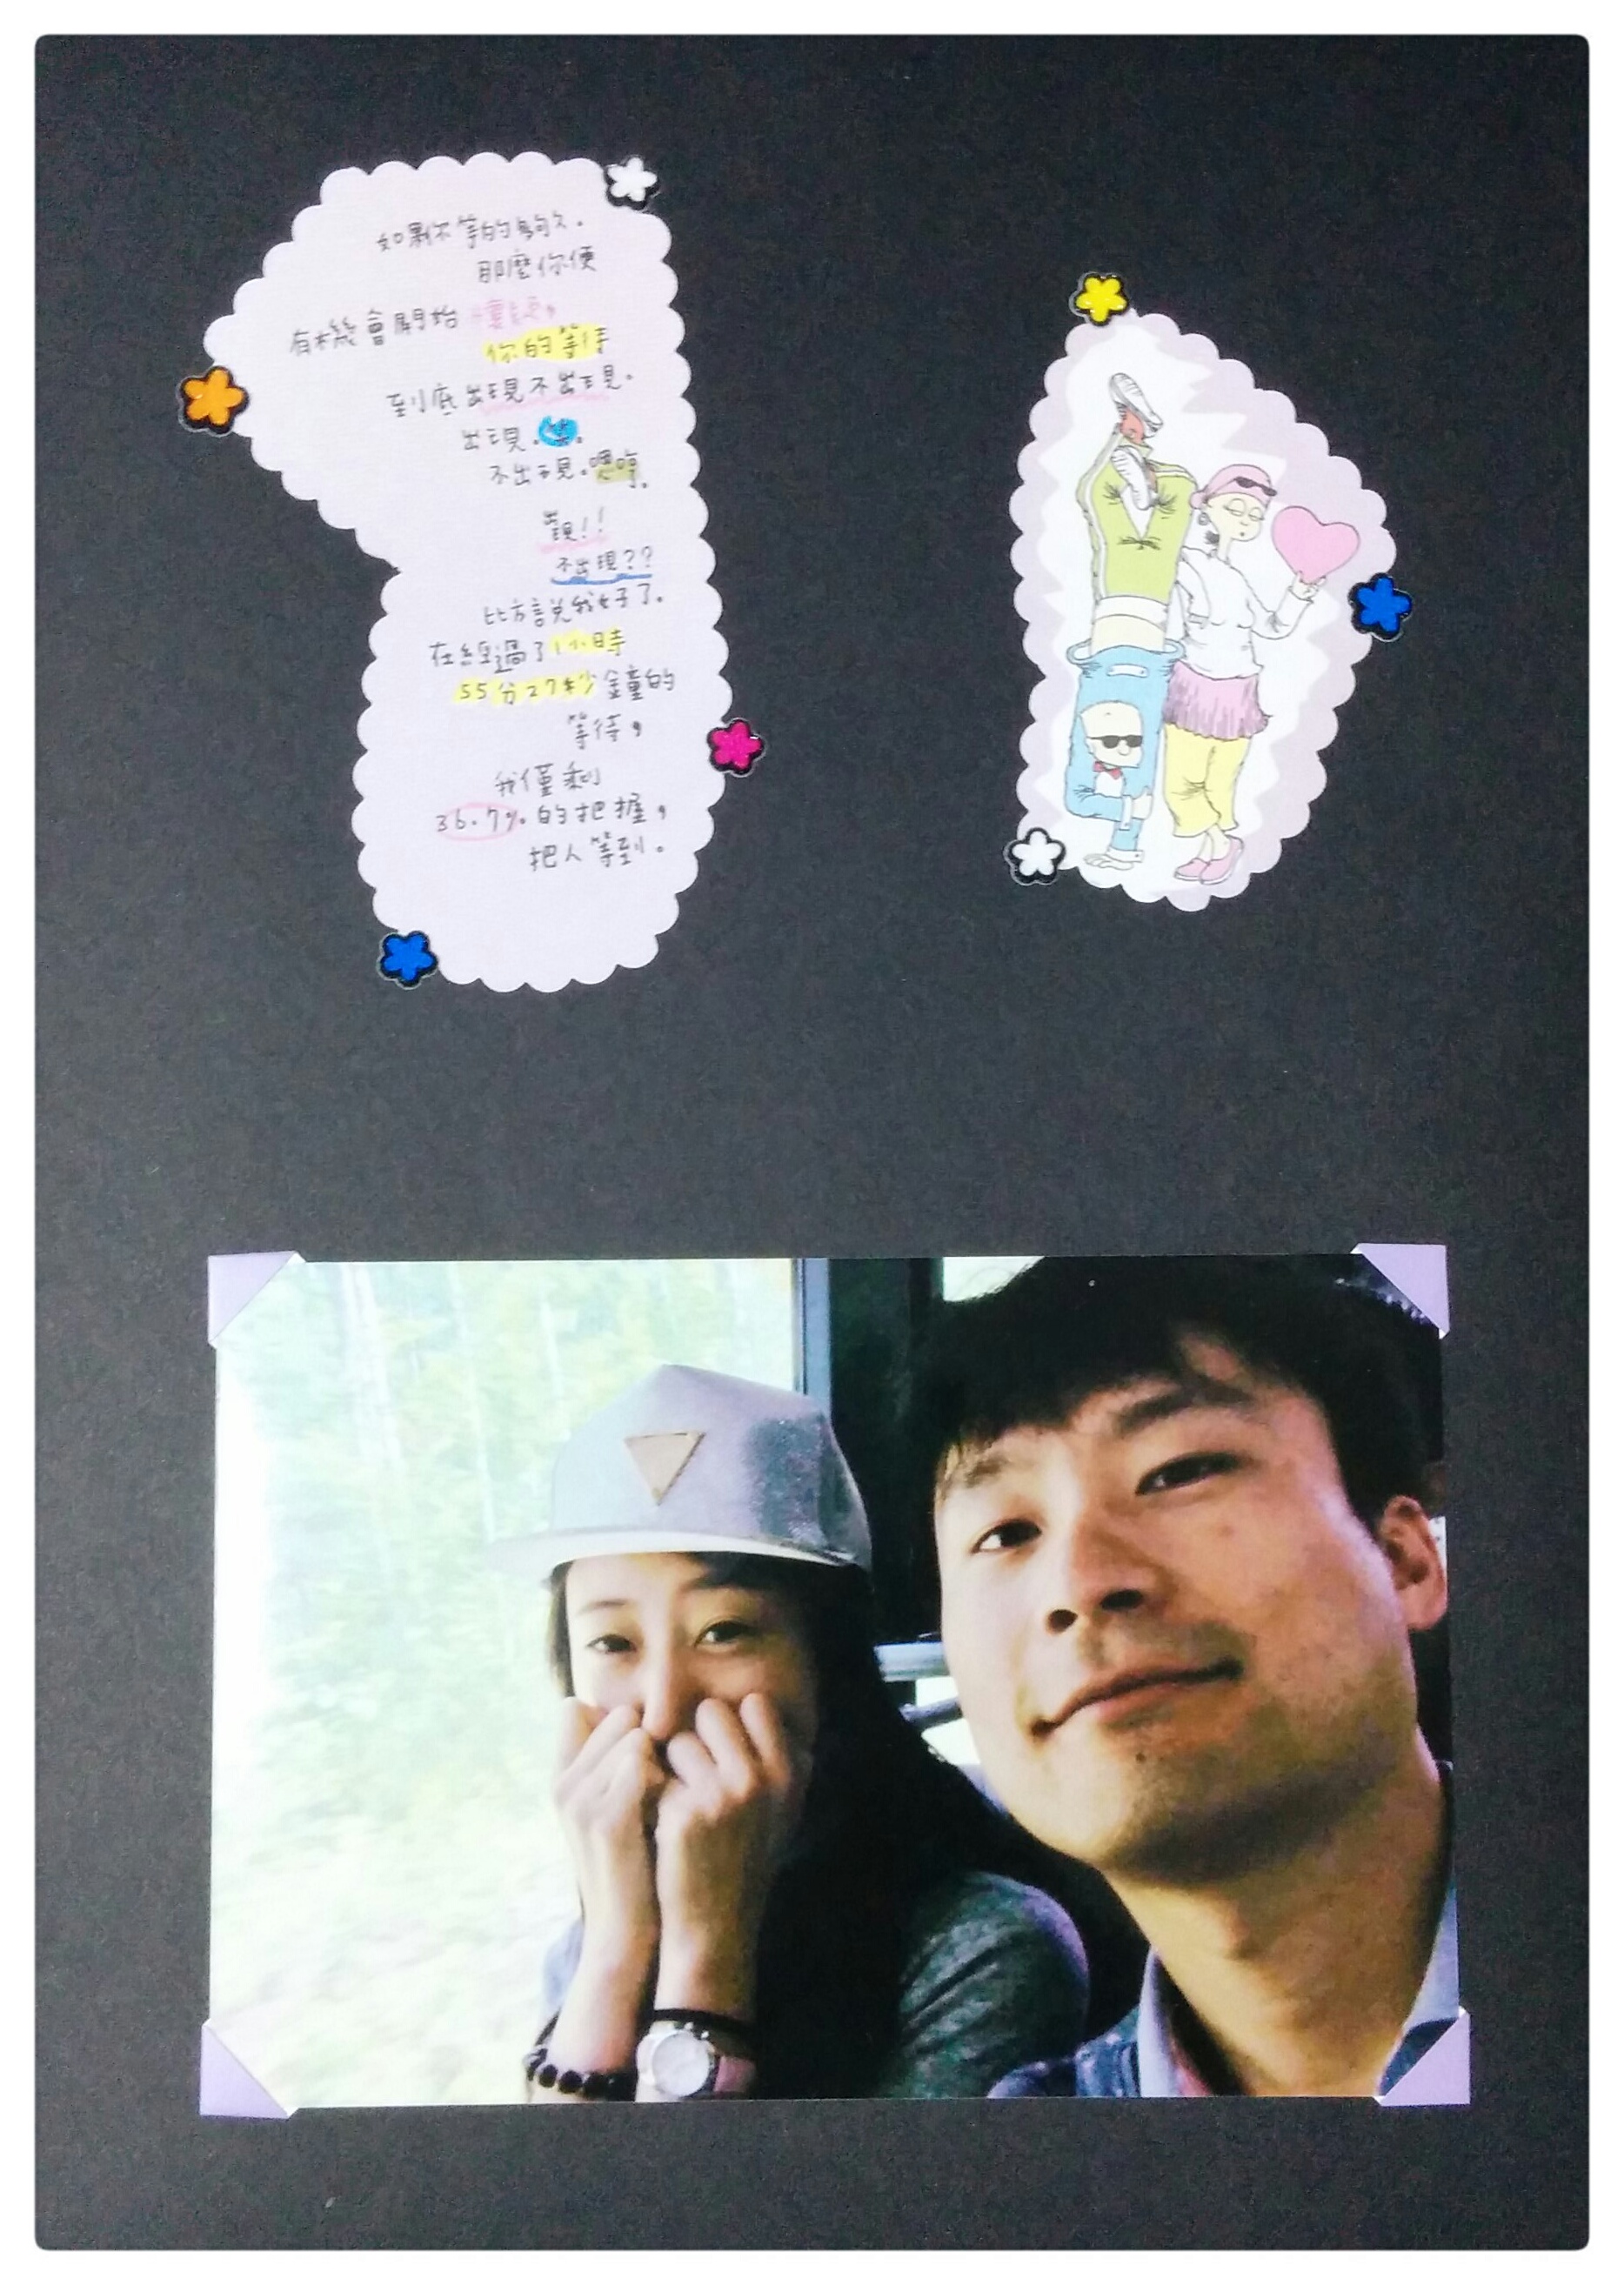 如果你等的夠久。
那麼你便
有機會開始懷疑,
你的等待
到底出現不出現。
出現。笑。
不出現。嗯哼。
出現!!
不出現??
比方說我好了。
在經過了1小時
55分27秒鐘的
等待,
我僅剩
36.7%的把握,
把人等到。